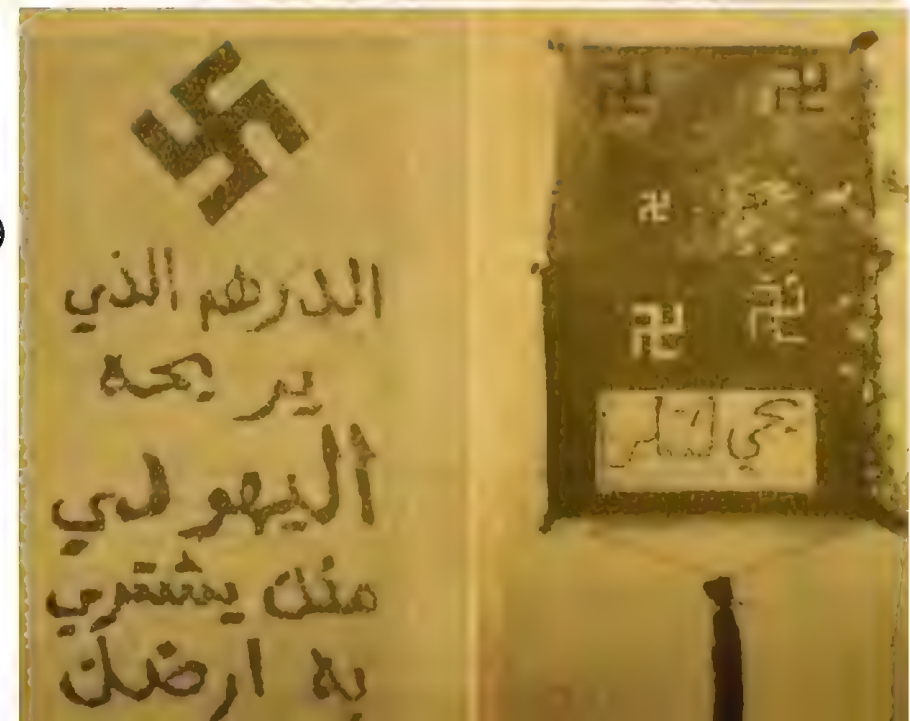 الدرهم الذي
يربحه
اليهودي
منك يشتري
به ارضك
يحي